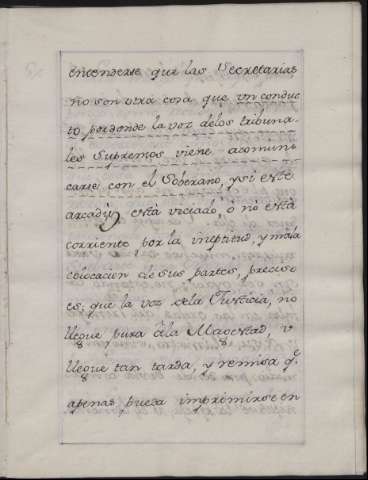 entenderse que las Secretarias
no son otra cosa que un conduc
to, pordonde la voz delos tribuna-
les Supremos viene acomuni
carse con el Soberano, ysi este
está viciado, ó nó está
corriente por la ineptitud, y mala
colocacion de sus partes, preciso
es, que la voz dela Justicia, no
llegue pura âla Magestad, ú
llegue tan tarda, y remisa q.e
apenas pueda imprimirse en